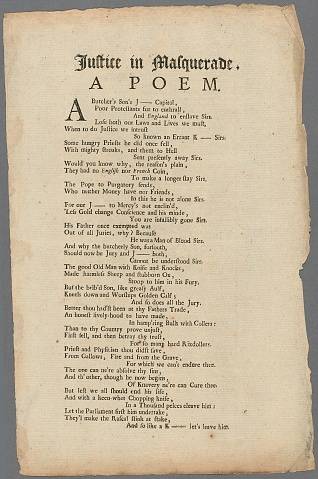 Justice in Masquerade.
A POEM.
A Butcher's Son's J—— Capitol,
Poor Protestants for to enthrall,
And England to enslave Sirs
Lose both our Laws and Lives we must,
When to do Justice we intrust
So known an Errant K—— Sirs
Some hungry Priests he did once fell,
With mighty stroaks, and them to Hell
Sent presently away Sirs.
Would you know why, the reason's plain,
They had no English nor French Coin,
To make a longer stay Sirs.
The Pope to Purgatory sends,
Who neither Money have nor Friends,
In this he is not alone Sirs.
For our J—— to Mercy's not enclin'd,
'Less Gold change Conscience and his minde,
You are infallibly gone Sirs.
His Father once exempted was
Out of all Juries, why? Because
He was a Man of Blood Sirs.
And why the butcherly Son, forsooth,
Should now be Jury and J—— both,
Cannot be understood Sirs.
The good Old Man with Knife and Knocks,
Made harmless Sheep and stubborn Ox,
Stoop to him in his Fury.
But the brib'd Son, like greasy
Kneels down and Worships Golden Calf;
And so does all the Jury.
Better thou hadst been at thy Fathers Trade,
An honest lively-hood to have made,
In hamp'ring Bulls with Collers:
Than to thy Country prove unjust,
First sell, and then betray thy trust,
For so many hard Rixdollers.
Priest and Physitian thou didst save,
From Gallows, Fire and from the Grave,
For which we can't endure thee.
The one can ne're absolve thy sins,
And th' other, though he now begins,
Of Knavery ne're can Cure thee.
But lest we all should end his life,
And with a keen-whet Chopping knife,
In a Thousand peices cleave him:
Let the Parliament first him undertake,
They'l make the Rascal stink at stake,
And so like a K—— let's leave him.